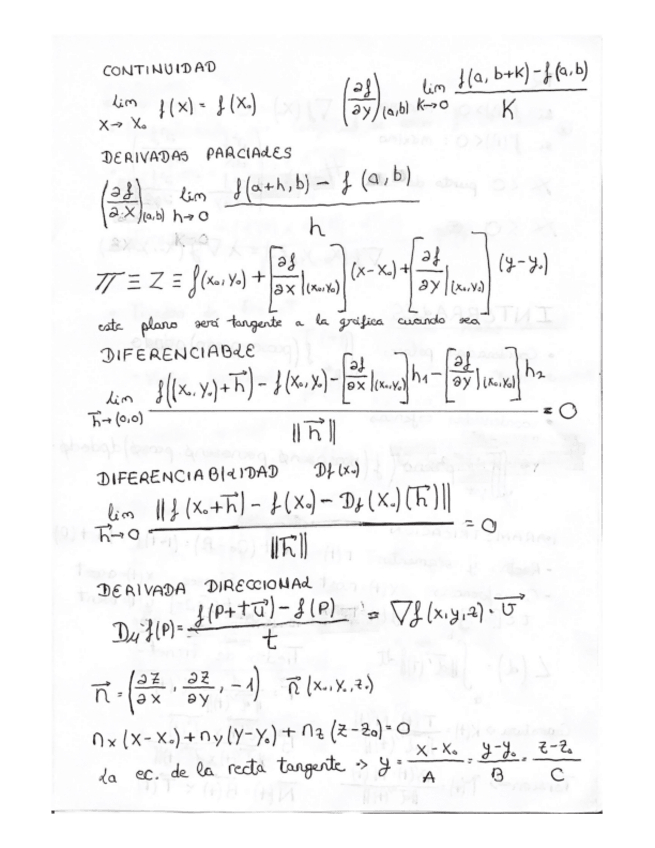 CONTINUIDAD
lim x→x₀ f(x) = f(x₀)   (∂f/∂y)(a,b) lim k→0 (f(a, b+k) - f(a,b))/K
DERIVADAS PARCIALES
(∂f/∂x)(a,b) lim h→0 (f(a+h, b) - f(a,b))/h
π ≡ Z ≡ f(x₀, y₀) + [∂f/∂x|(x₀,y₀)] (x-x₀) + [∂f/∂y|(x₀,y₀)] (y-y₀)
este plano será tangente a la gráfica cuando sea
DIFERENCIABLE
lim h⃗→(0,0) (f((x₀, y₀)+h⃗) - f(x₀, y₀) - [∂f/∂x|(x₀,y₀)] h₁ - [∂f/∂y|(x₀,y₀)] h₂)/||h⃗|| = 0
DIFERENCIABILIDAD   Df(x₀)
lim h⃗→0 ||f(x₀+h⃗) - f(x₀) - Df(x₀)(h⃗)||/||h⃗|| = 0
DERIVADA DIRECCIONAL
Dᵤ f(P) = (f(P+tu⃗) - f(P))/t = ∇f(x,y,z) · v⃗
n⃗ = (∂z/∂x, ∂z/∂y, -1)   n⃗ (x₀, y₀, z₀)
nx (x-x₀) + ny (y-y₀) + nz (z-z₀) = 0
La ec. de la recta tangente → y = (x-x₀)/A = (y-y₀)/B = (z-z₀)/C